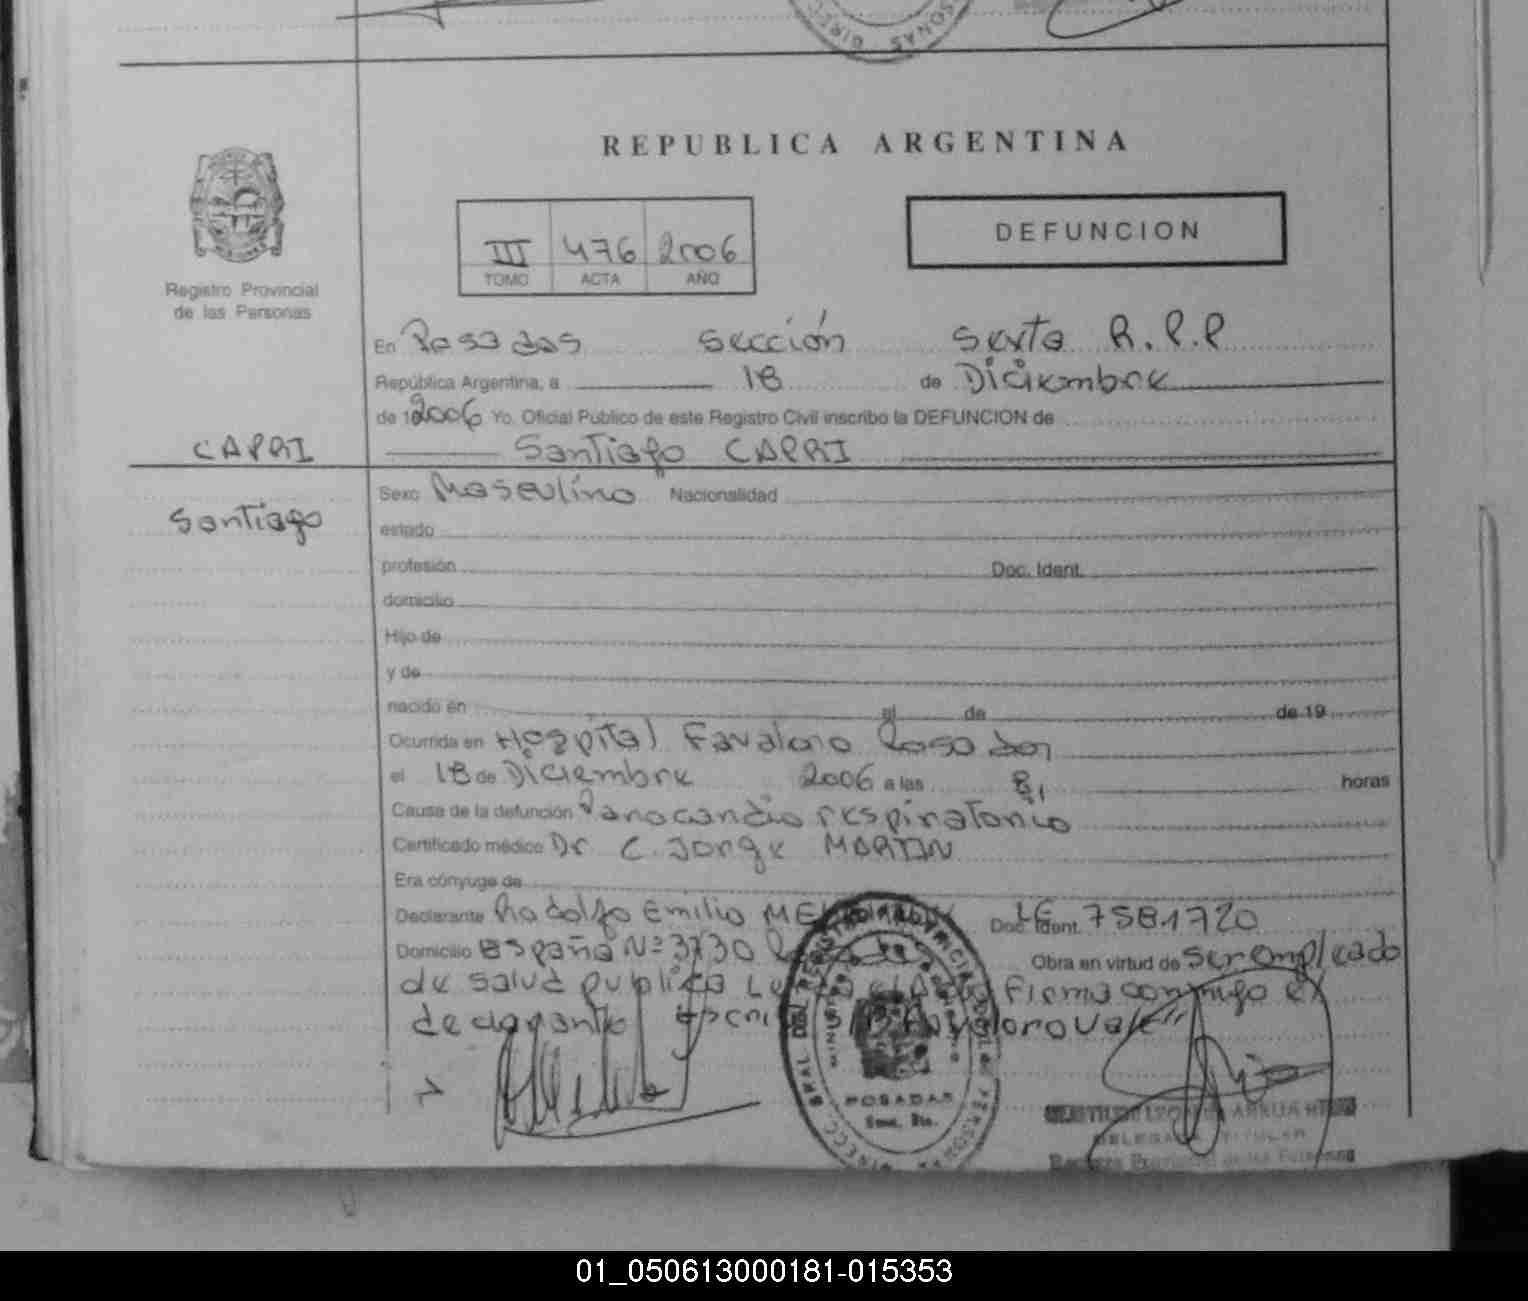 REPUBLICA ARGENTINA
DEFUNCION
III 476 2006
TOMO ACTA AÑO
Registro Provincial
de las Personas
En Posadas Sección Sexta R.P.P
República Argentina, a 18 de Diciembre
de 19 2006 Yo, Oficial Público de este Registro Civil inscribo la DEFUNCION de
CAPRI
Santiago CAPRI
Santiago
Sexo Masculino Nacionalidad
estado
profesión Doc. Ident.
domicilio
Hijo de
y de
nacido en el de de 19
Ocurrida en Hospital Favaloro Posadas
el 18 de Diciembre 2006 a las 8, horas
Causa de la defunción Parocardio respiratorio
Certificado médico Dr C. Jorge MARTIN
Era cónyuge de
Declarante Rodolfo Emilio Doc. Ident. LE 7581720
Domicilio España Nº 3730 Obra en virtud de ser empleado
de salud publica firma conmigo el
declarante Favaloro Vale"
DIRECC. GRAL. DEL REGISTRO PROVINCIAL DE LAS PERSONAS
POSADAS
DELEGADA TITULAR
Registro Provincial de las Personas
01_050613000181-015353